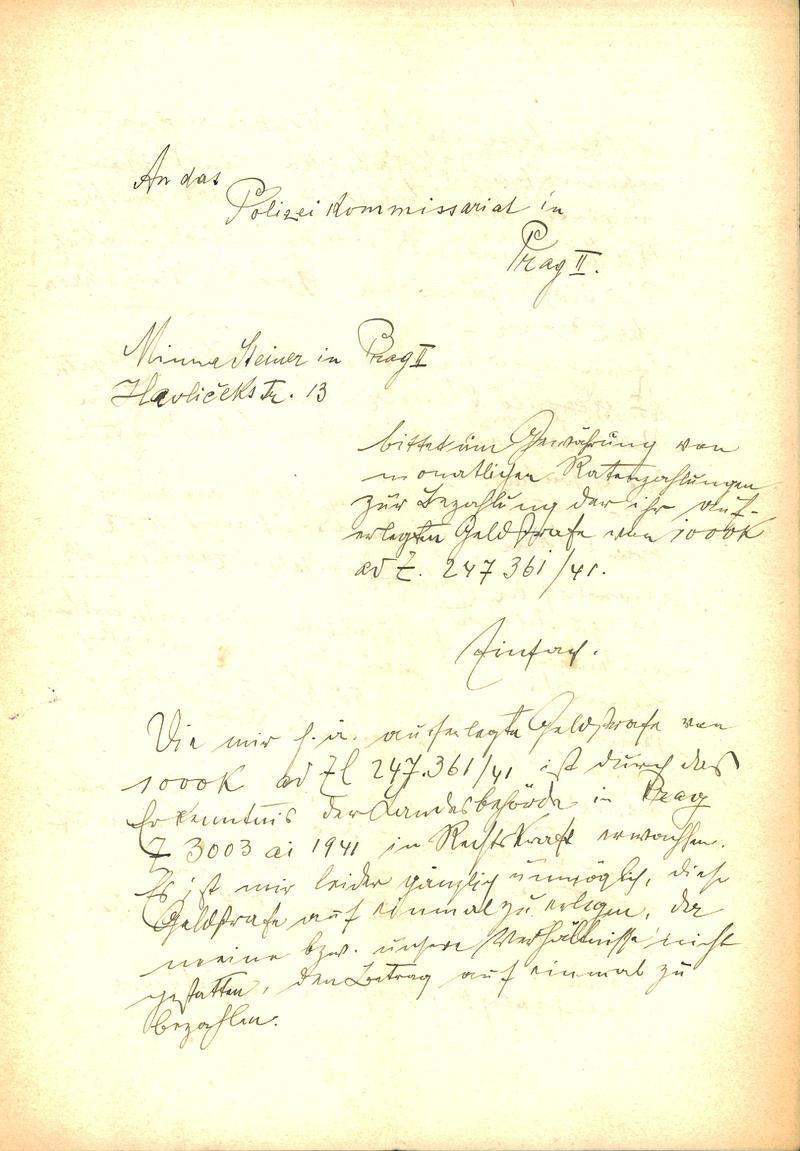 An das
Polizeikommissariat in
Prag II.
Minna Steiner in Prag II
Havlíčekstr. 13
bittet um Gewährung von
monatlichen Ratenzahlungen
zur Bezahlung der ihr auf-
erlegten Geldstrafe von 1000K
ad Z. 247361/41.
Einfach.
Die mir h. a. auferlegte Geldstrafe von
1000K ad Zl 247.361/41 ist durch das
Erkenntnis der Landesbehörde in Prag
Z 3003 ai 1941 in Rechtskraft erwachsen.
Es ist mir leider gänzlich unmöglich, diese
Geldstrafe auf einmal zu erlegen, da
meine bzw. unsere Verhältnisse nicht
gestatten, den Betrag auf einmal zu
bezahlen.